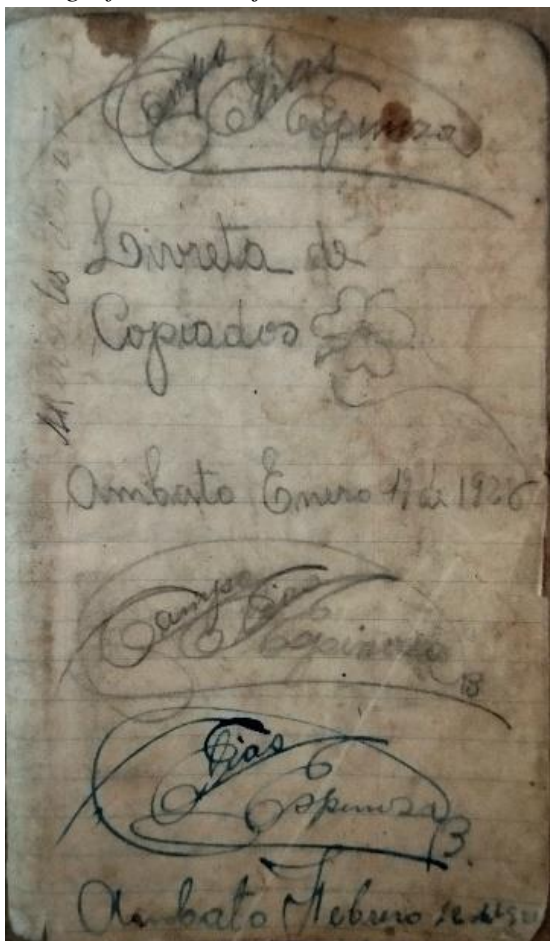 Campo Elias
Espinoza
Livreta de
Copiados
Ambato Enero 19 de 1926
Campo Elias
Espinoza
13
Elias
Espinoza
13.
Ambato Febrero